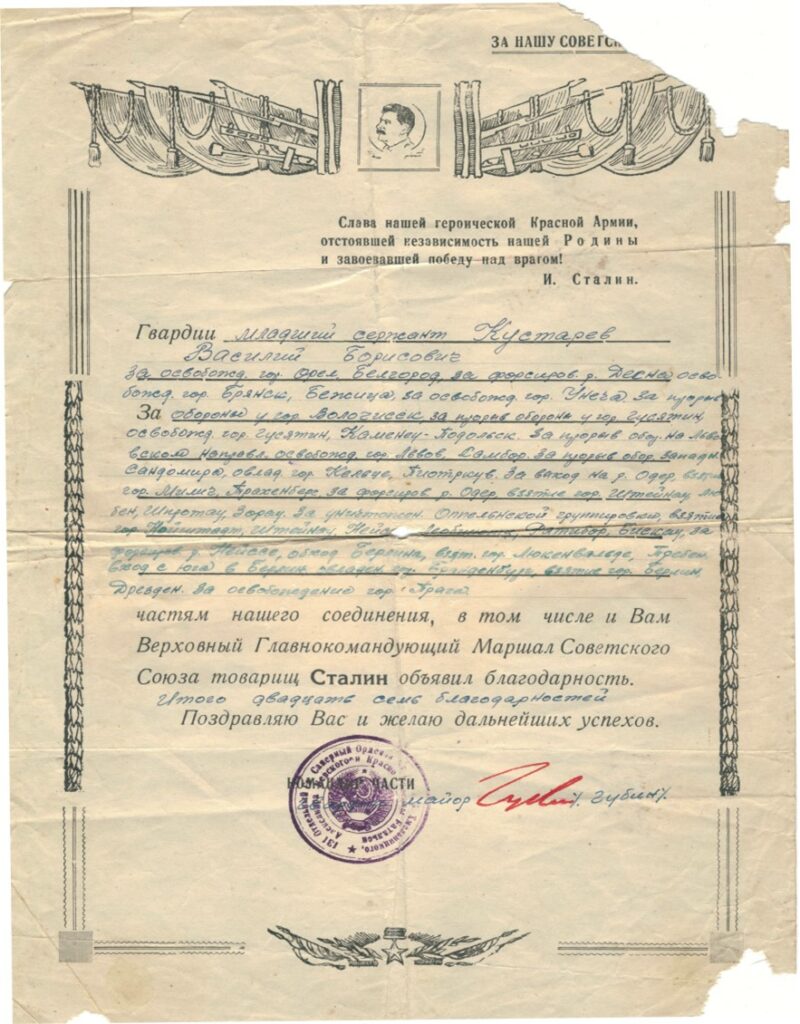 ЗА НАШУ СОВЕТСК
Слава нашей героической Красной Армии,
отстоявшей независимость нашей Родины
и завоевавшей победу над врагом!
И. Сталин.
Гвардии младший сержант Кустарев
Василий Борисович
За освобожд. гор. Орел, Белгород, за форсиров. р. Десна, осво-
божд. гор. Брянск, Бежица, за освобожд. гор. Унеча, за прорыв
За обороны у гор. Волочисск, за прорыв обороны у гор. Гусятин,
освобожд. гор. Гусятин, Каменец-Подольск. За прорыв обор. на Льво-
вском направл. освобожд. гор. Львов, Самбор. За прорыв обор. западн.
Сандомира, овлад. гор. Кельце, Пиотркув. За выход на р. Одер, взятие
гор. Милич, Трахенберг, за форсиров. р. Одер, взятие гор. Штейнау, Лю-
бен, За уничтожен. Оппельнской группировки, взятие
гор. Нойштадт, Штейнау, Ратибор, Бискау, за
форсиров. р. Нейссе, обход Берлина, взят. гор. Люкенвальде, Треббен,
вход с юга в Берлин овладен. гор. Бранденбург, взятие гор. Берлин
Дрезден. За освобождение гор. Прага
частям нашего соединения, в том числе и Вам
Верховный Главнокомандующий Маршал Советского
Союза товарищ Сталин объявил благодарность.
Итого двадцать семь благодарностей
Поздравляю Вас и желаю дальнейших успехов.
КОМАНДИР ЧАСТИ
майор Губин
131 Отдельный